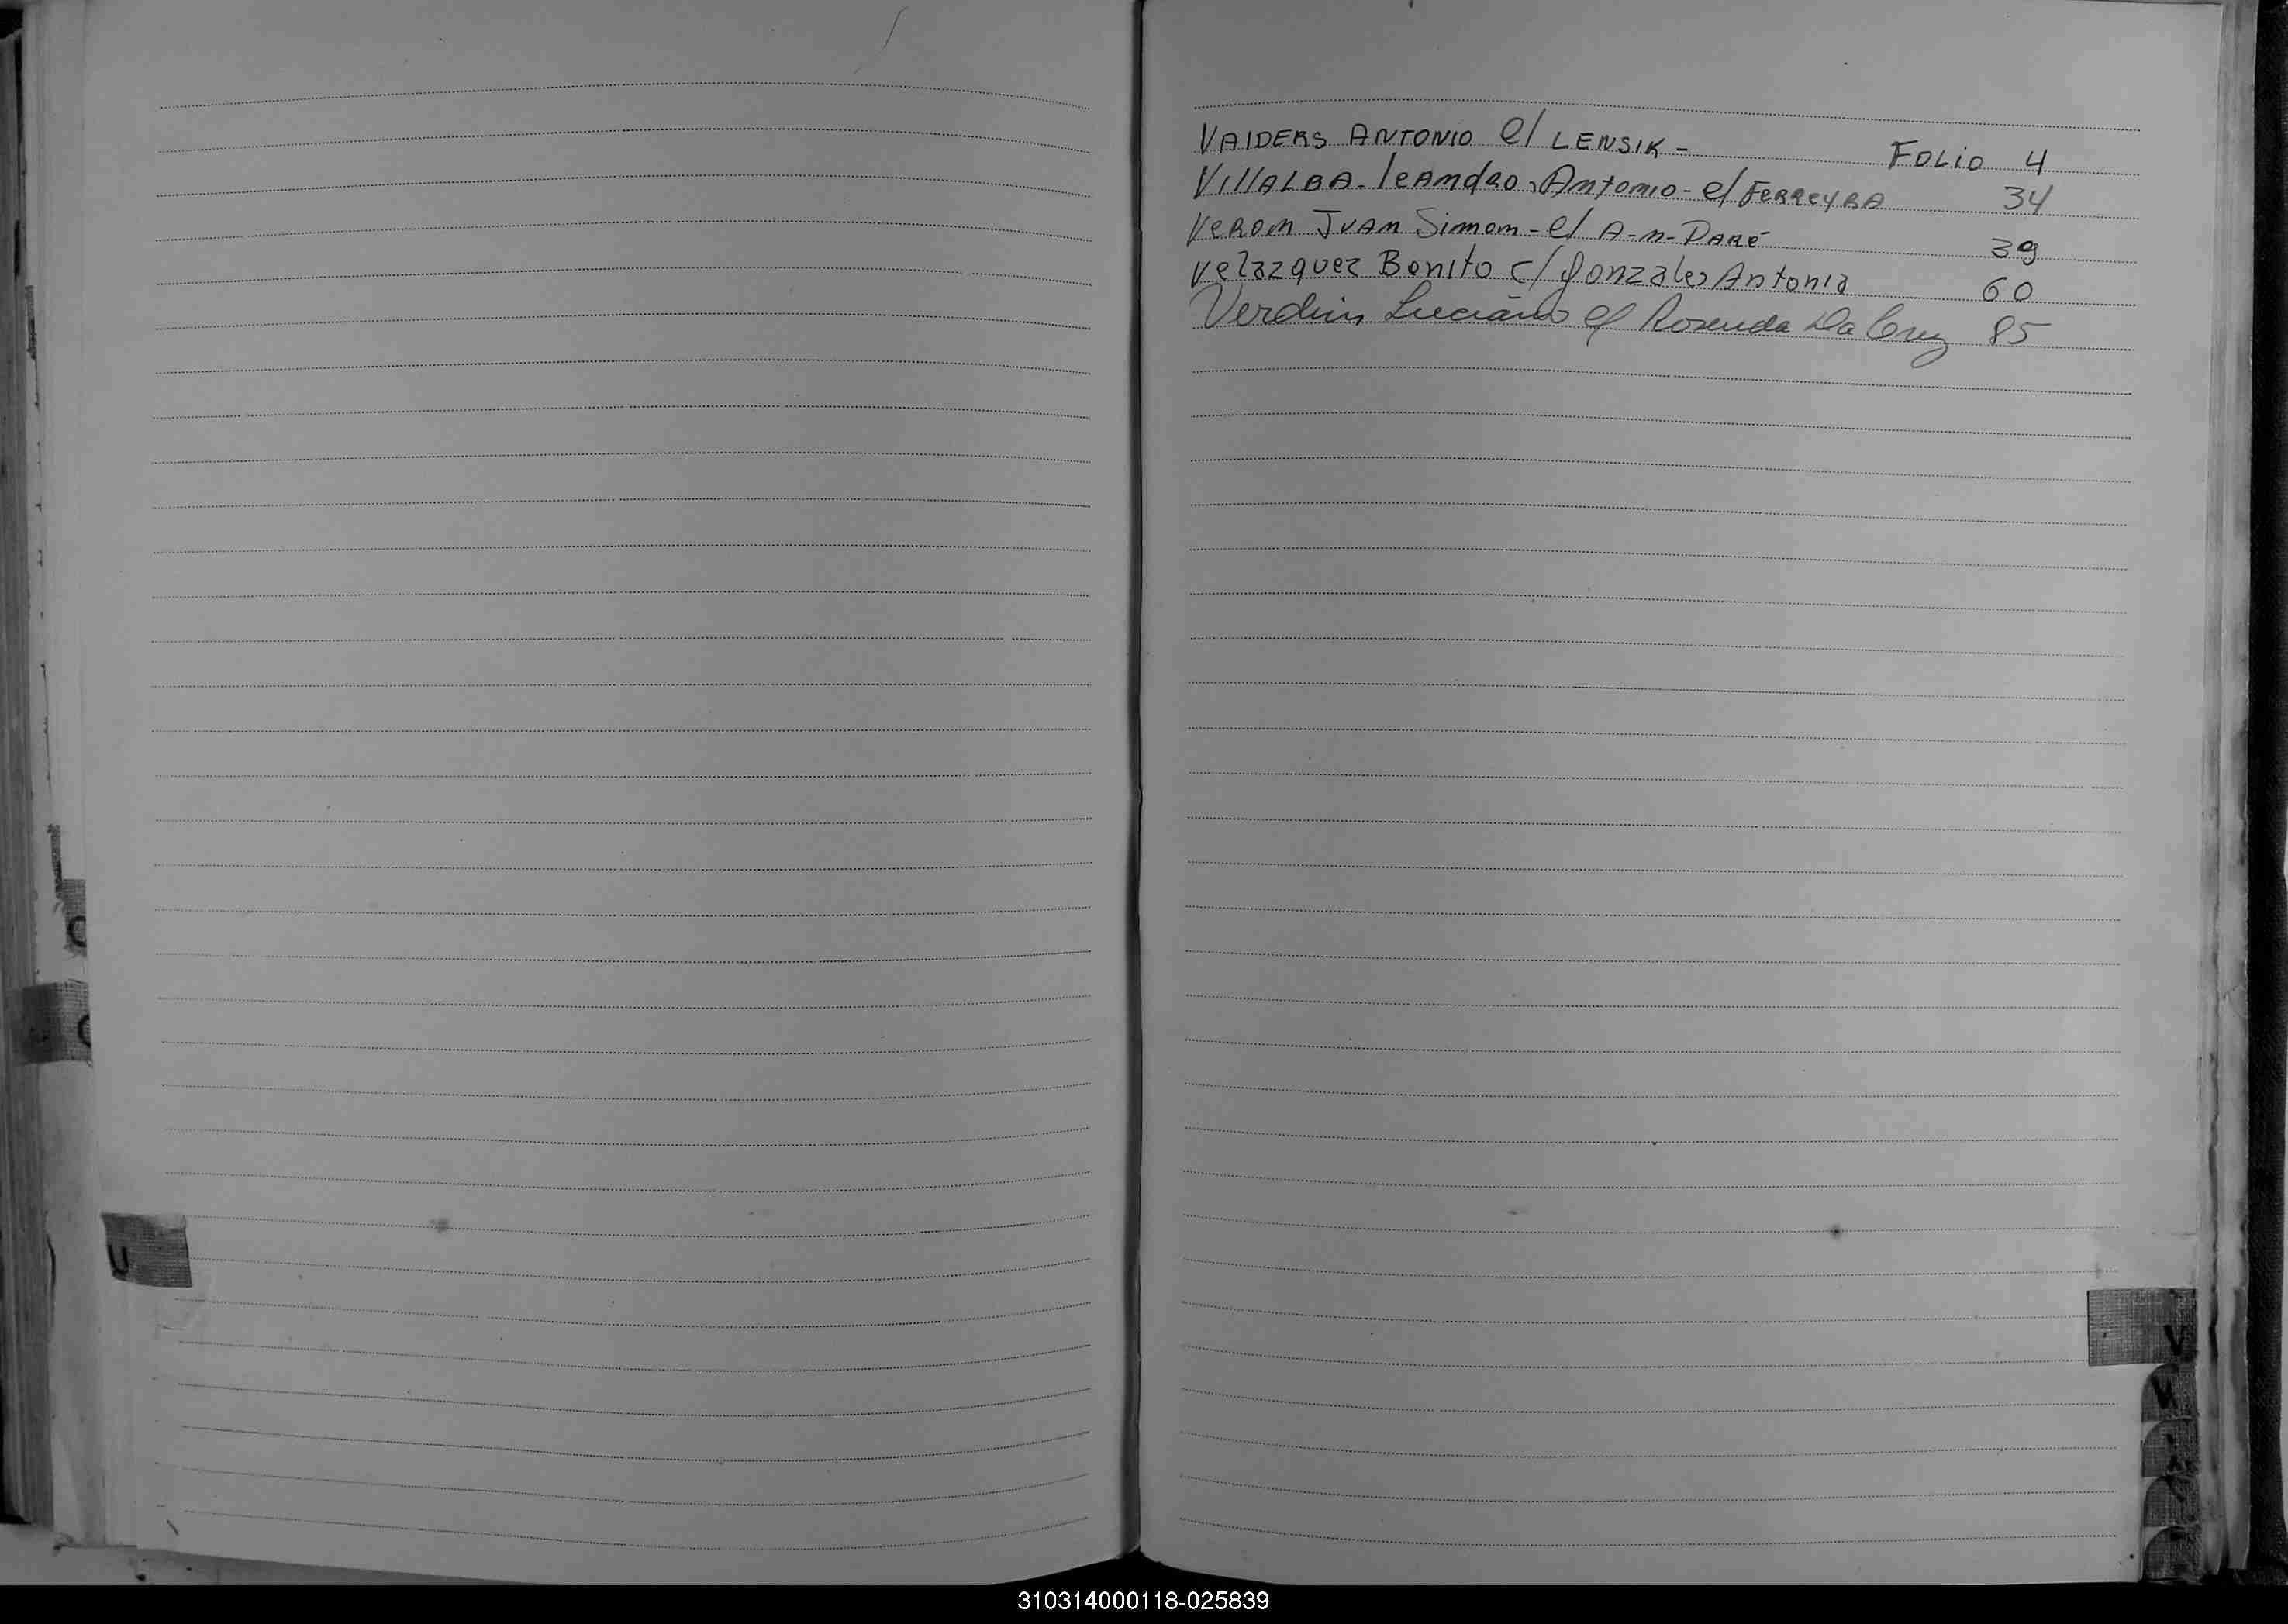 VAIDERS ANTONIO C/ LENSIK - FOLIO 4
VillALBA - leAndRO, Antonio - C/ FERREYRA 34
VeRon JUAN Simon - C/ A - n - DARé 39
Velazquez Benito c/ gonzales Antonia 60
Verdun Luciano C/ Rosenda Da Cruz 85
U
V
V
310314000118-025839